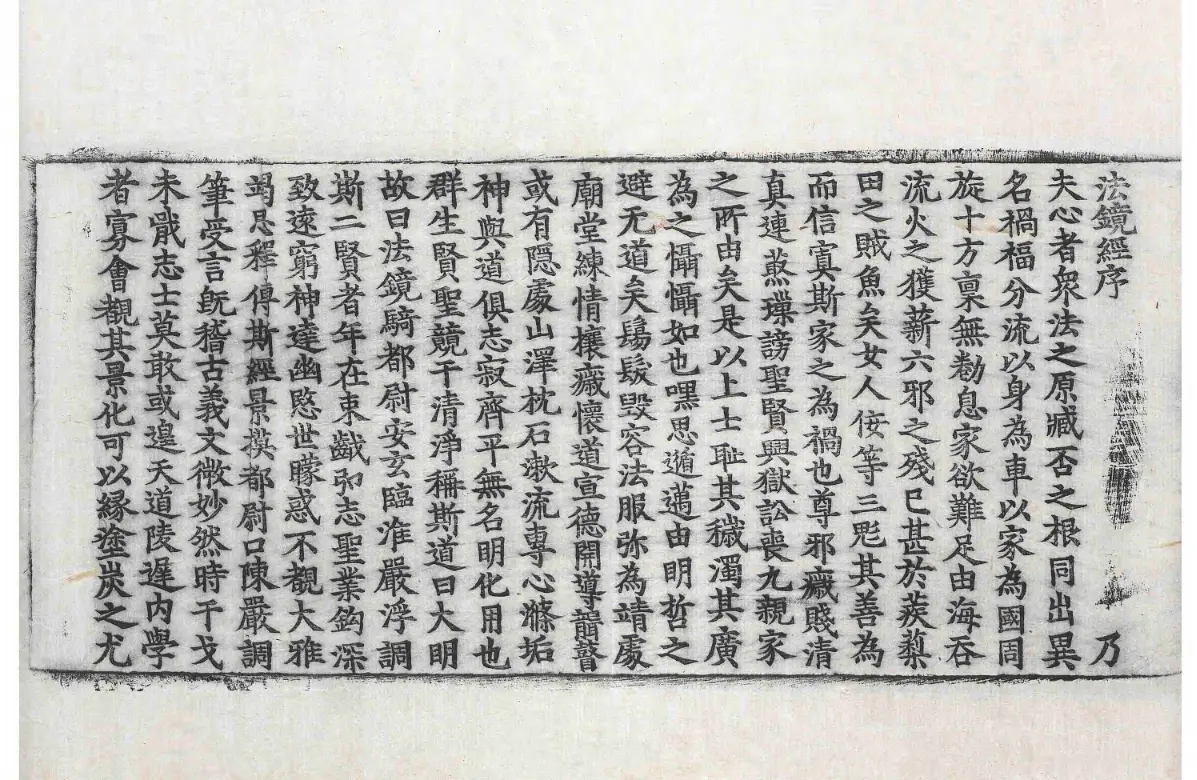 法鏡經序 乃
夫心者衆法之原臧否之根同出異
名禍福分流以身為車以家為國周
旋十方稟無勌息家欲難足由海吞
流火之獲薪六邪之殘已甚於蒺䔧
田之賊魚矣女人佞等三鬽其善為
而信寡斯家之為禍也尊邪穢賤清
真連菆璅謗聖賢興獄訟喪九親家
之所由矣是以上士耻其穢濁其廣
為之懾懾如也嘿思遁邁由明哲之
避无道矣鬄髮毀容法服弥為靖處
廟堂練情攘穢懷道宣德開導聾瞽
或有隱處山澤枕石漱流專心滌垢
神與道俱志寂齊平無名明化用也
群生賢聖競于清淨稱斯道曰大明
故曰法鏡騎都尉安玄臨淮嚴浮調
斯二賢者年在束齔弘志聖業鈎深
致遠窮神達幽愍世矇惑不覩大雅
竭思釋傳斯經景摸都尉口陳嚴調
筆受言既稽古義文微妙然時干戈
未戢志士莫敢或遑天道陵遲内學
者寡會觀其景化可以緣塗炭之尤